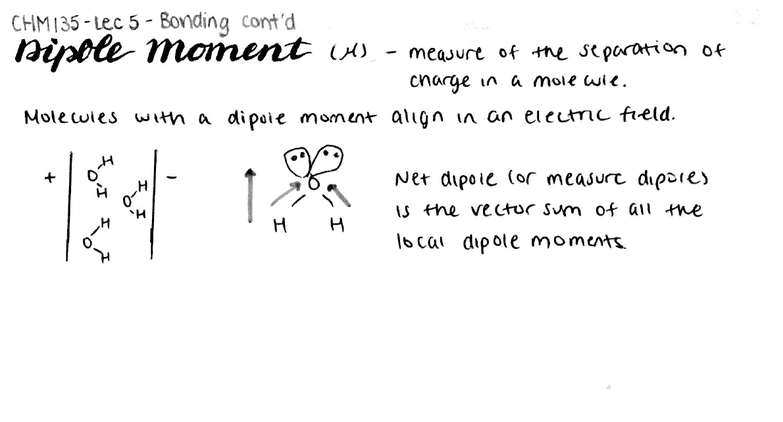 CHM135 - Lec 5 - Bonding cont'd
Dipole Moment (μ) - measure of the separation of
charge in a molecule.
Molecules with a dipole moment align in an electric field.
+ -
H
O
H
H
O
H
H
O
H
O
H H
Net dipole (or measure dipoles)
is the vector sum of all the
local dipole moments.